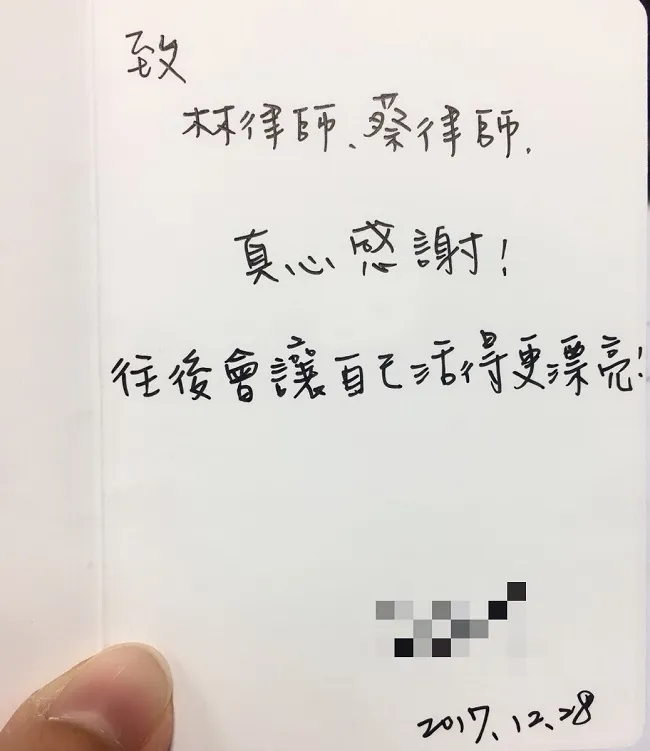 致
林律師、蔡律師.
真心感謝!
往後會讓自己活得更漂亮!
2017.12.28